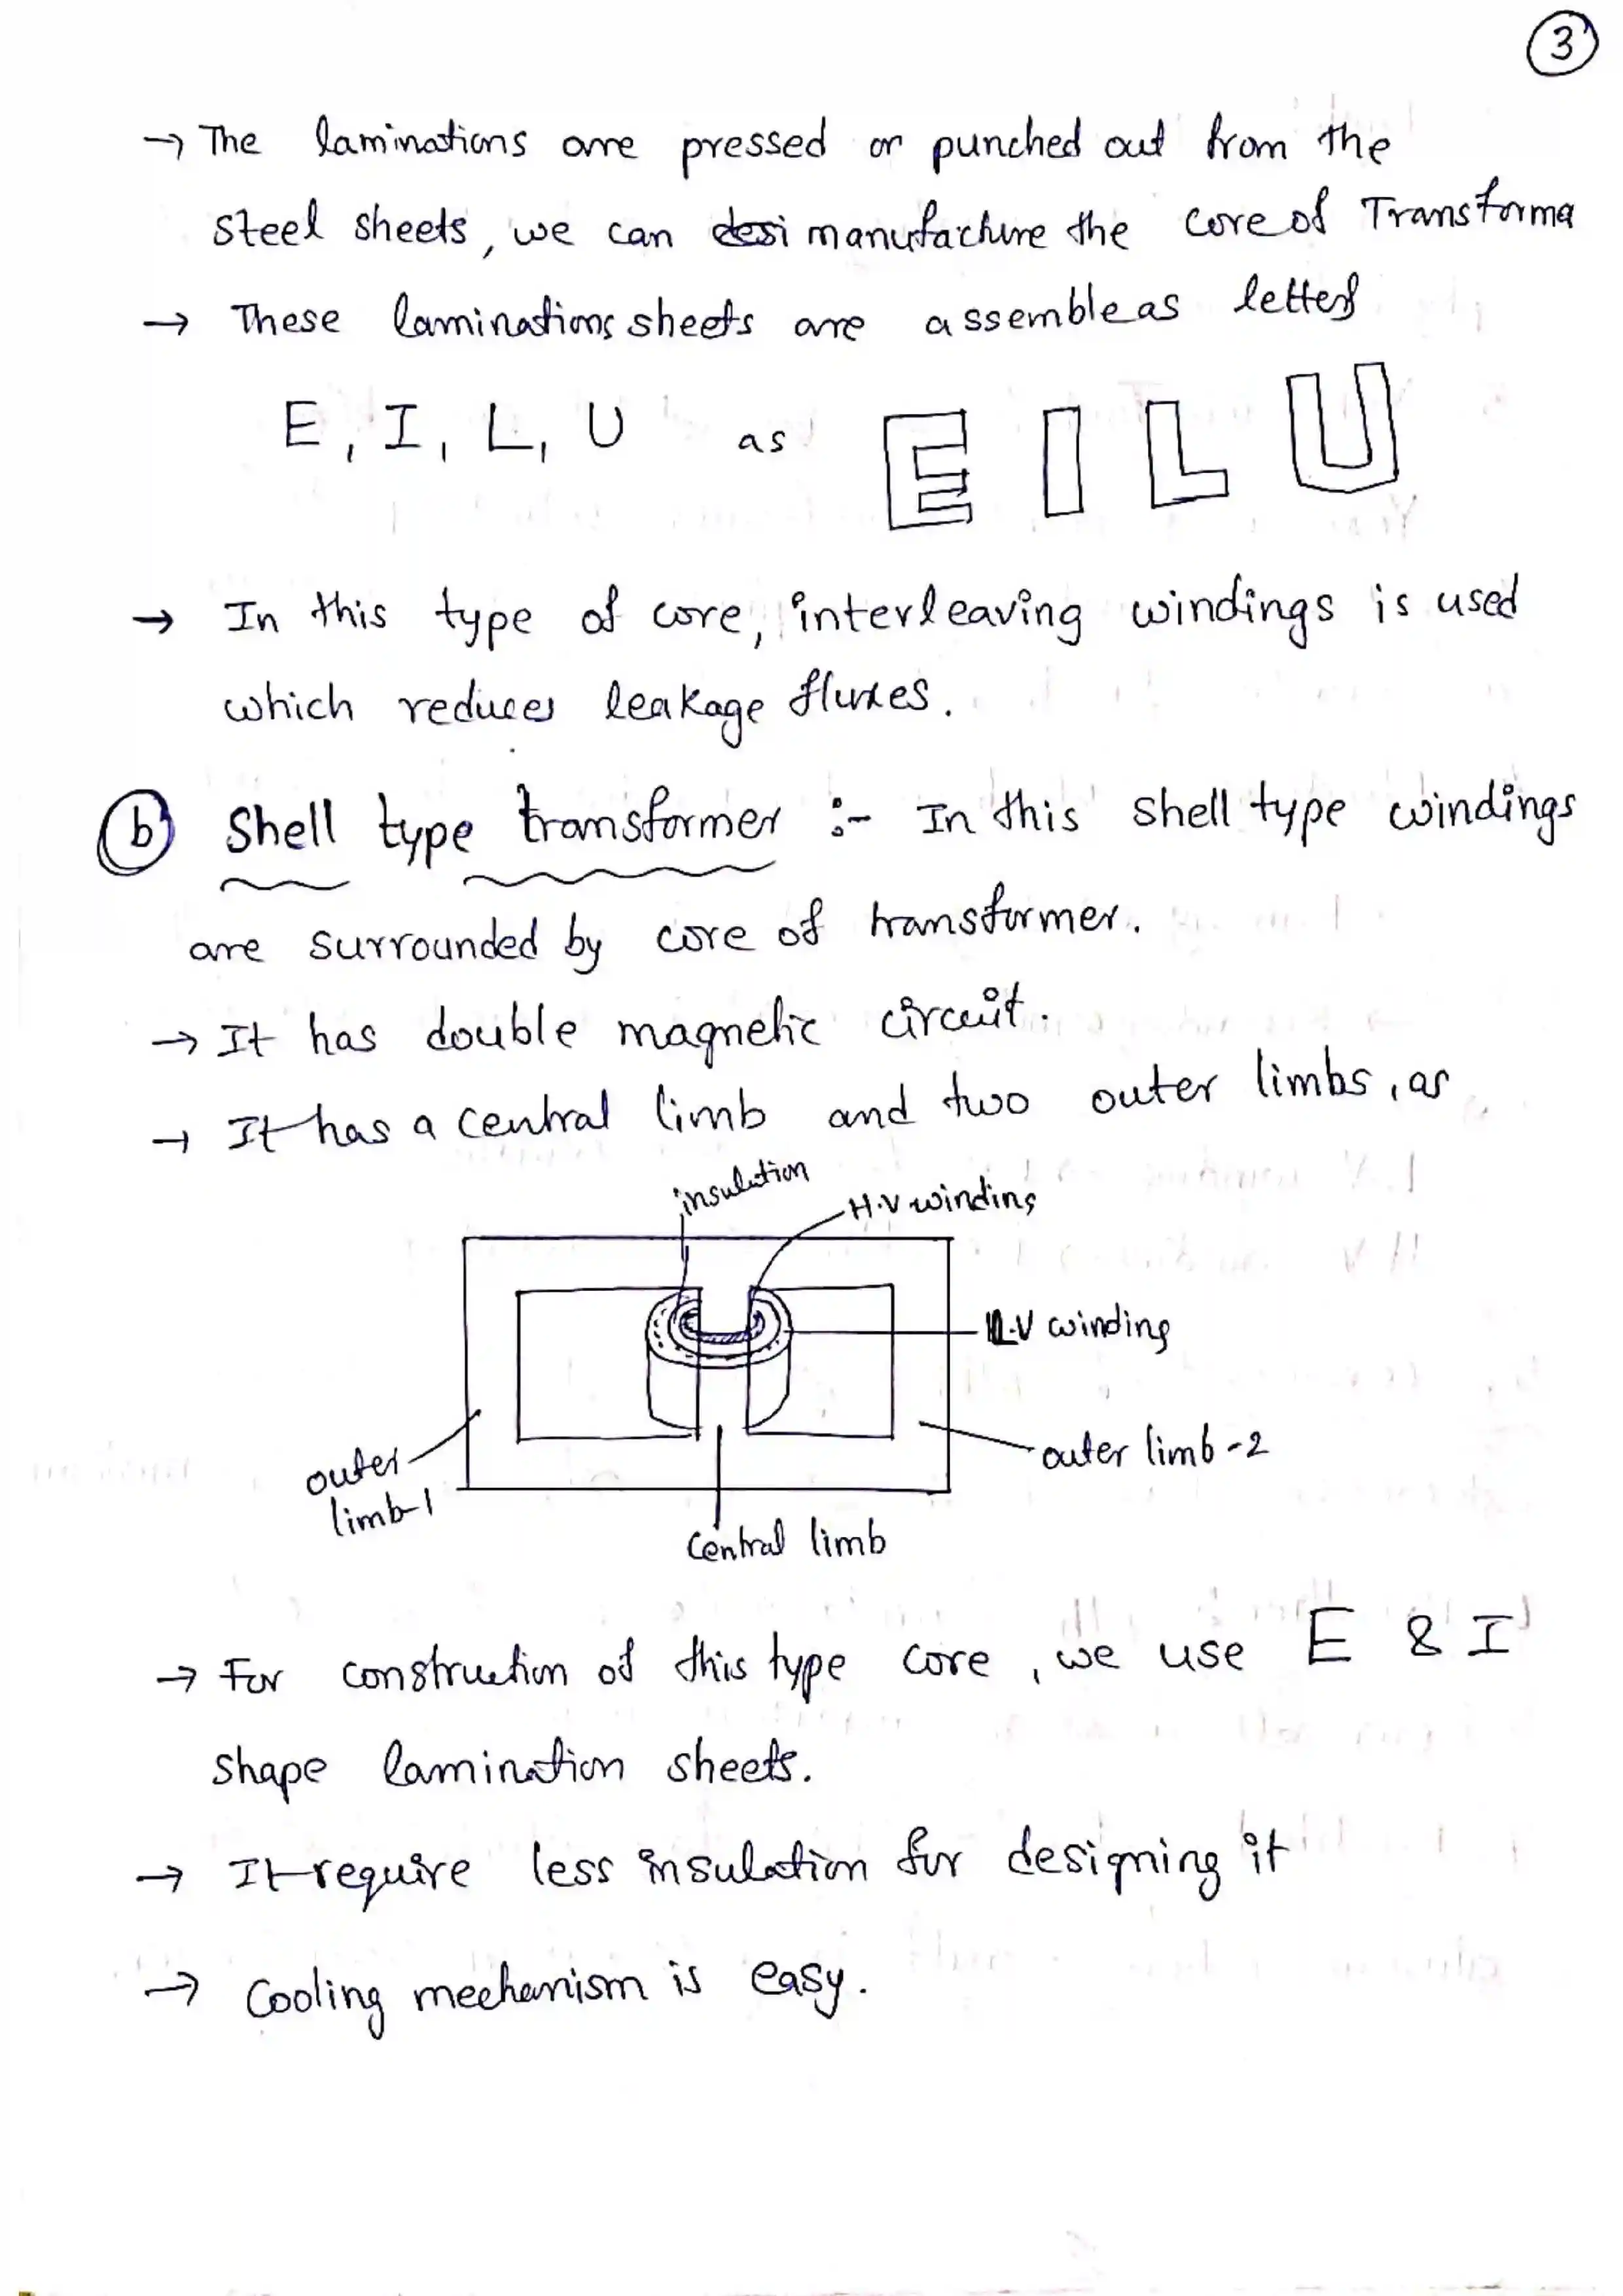 3
→ The laminations are pressed or punched out from the
steel sheets, we can desi manufacture the core of Transforma
→ These laminations sheets are assemble as letters
E, I, L, U as E I L U
→ In this type of core, interleaving windings is used
which reduces leakage fluxes.
(b) Shell type transformer :- In this shell type windings
are surrounded by core of transformer.
→ It has double magnetic circuit.
→ It has a central limb and two outer limbs, as
insulation
H.V winding
L.V winding
outer
limb-1
outer limb-2
Central limb
→ For construction of this type core, we use E & I
shape lamination sheets.
→ It require less insulation for designing it
→ Cooling mechanism is easy.